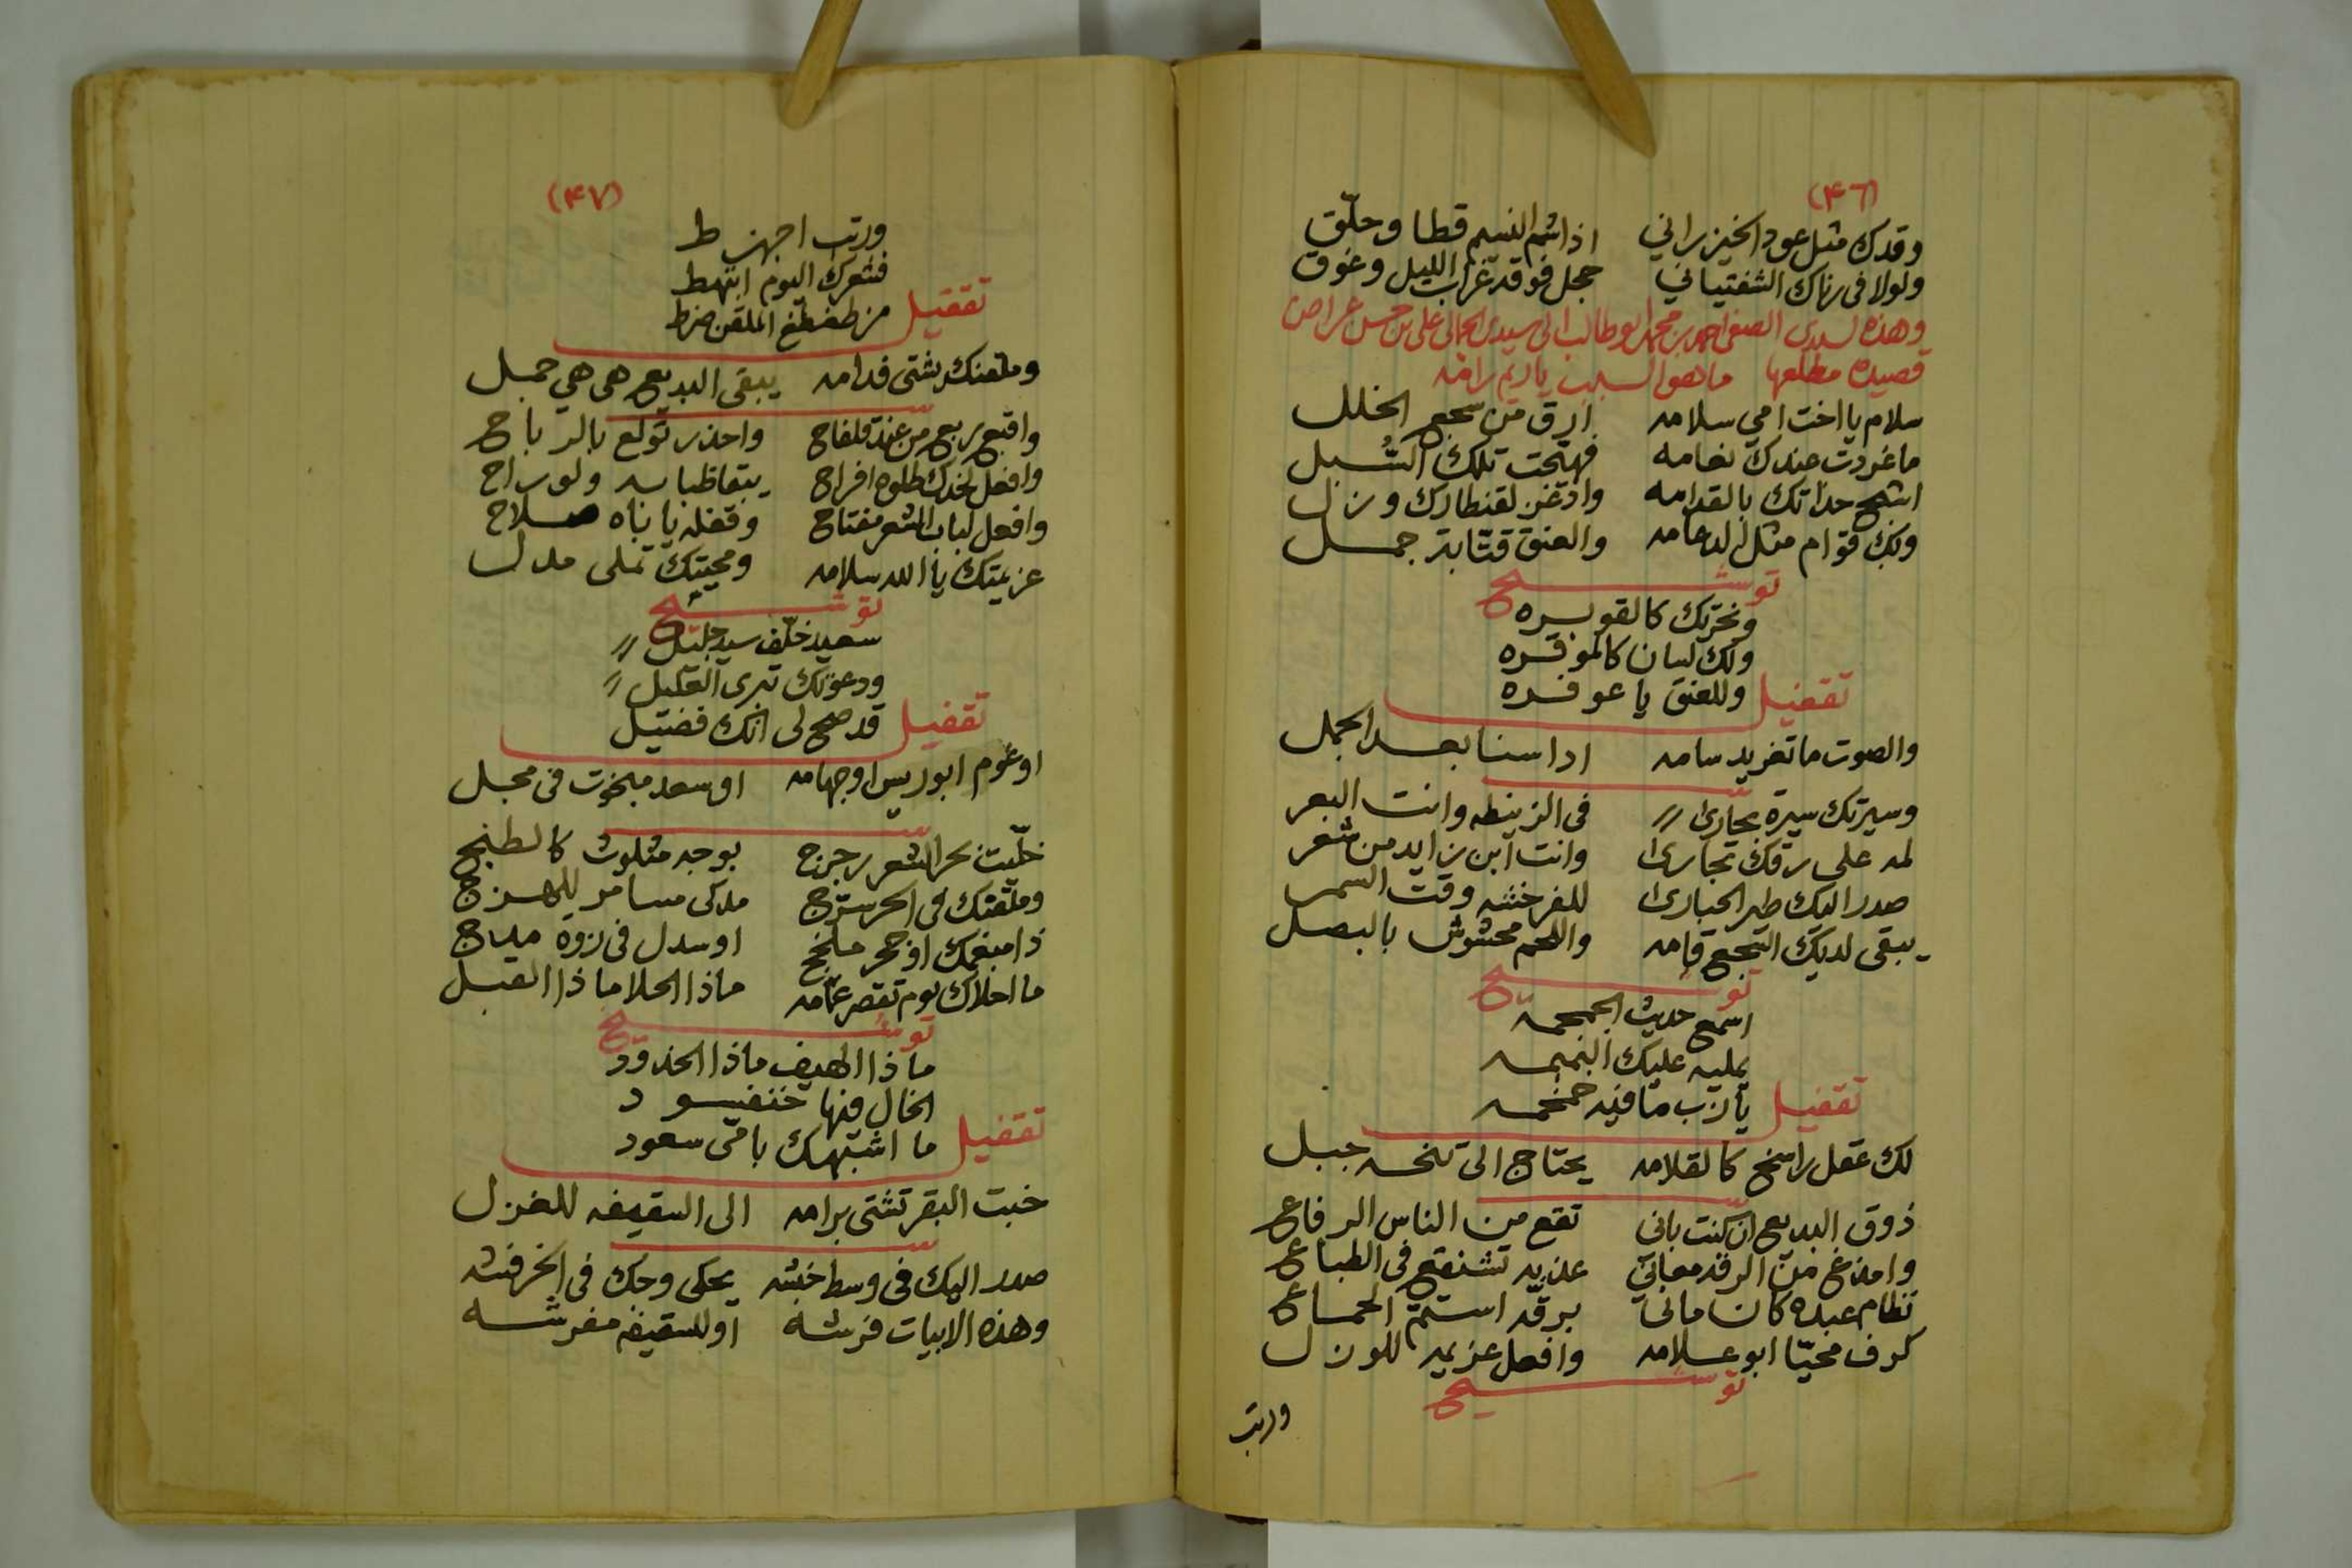 (٤٦)
وقدك مثل عود الخيزراني اذا شم النسيم قطا وحلّق
ولولا في زناك الشفتياني حجل فوقه غراب الليل وغوق
وهذه لسيدي الصفي احمد بن محمد ابو طالب الى سيدي الجمالي علي بن حسن
قصيدة مطلعها ما هو السبب يا ريم رامه
سلام يا اخت امي سلامه ارق من سجع الخلل
ما غردت عندك نعامه فهيّجت تلك السُبل
حداتك بالقدامه وادغن لقنطارك ونزل
ولك قوام مثل الدعامه والعنق قتّابة جمل
توشيح
ونخرتك كالقوبره
ولك لسان كالموفره
تقفيل
وللعنق يا عوفره
والصوت ما تغريد سامه اداسنا بعد الجمل
وسيرتك سيرة بخارى في الزينطه وانت البعر
لمه على رقك تجارى وانت ابن زايد من شعر
صدر اليك طير الحبارى للفرخشه وقت السمر
يبقى لديك التجع قامه واللحم محشوش بالبصل
توشيح
اسمع حديث الجمجمه
يمليه عليك النمنمه
تقفيل
يا رب ما فيه حمحمه
لك عقل راسخ كالقلامه يحتاج الى جبل
ذوق البديع ان كنت باني تقع من الناس الرفاع
وامدغ من الرقه معاني عذبه تشنقع في الطباع
نظام عبده كان ماني برقّه استمّ الجماع
كرف محيّا ابو علامه وافعل عزيمه للوزل
توشيح
ورتب
(٤٧)
ورتب اجهزط
فشعرك اليوم انتهط
تقفيل
من طغطغ الملقن ضرط
وملعنك بشتى قدامه يبقى البديع هي هي جمل
واقبع بربع من عند قلفاح واحذر تولع بالرباح
وافعل لخدك طلوه افراح يبقا ظبابه ولوراح
وافعل لباب الشعر مفتاح وقفله يا بناه صلاح
عزيمتك يا الله سلامه ومحيتك تملى مدل
توشيح
سعيد خلّف سيد جليل
ودعوتك تبري العليل
تقفيل
قد صح لي انك فضيل
اوعوم ابو ريس اوجهامه او سعد مبخوت في محل
خلّيت بحر الشعر رجرج بوجه مثلوث كالطنج
وملعتك في الحر سترج مدكى مسامر للهزج
ذا مبغمك او حجر ملخج او سدل في زوه
ما احلاك يوم تقصر عمامه ماذا الحلا ماذا القبل
توشيح
ماذا الهيف ماذا الخدود
الخال فيها خنفسود
تقفيل
ما اشبهك با متى سعود
خبت البقر تشتى برامه الى السقيفه للغزل
صدر اليك في وسط خبشه يحكي وحك في الخرفشه
وهذه الابيات فرشه او للسقيفه مفرشه